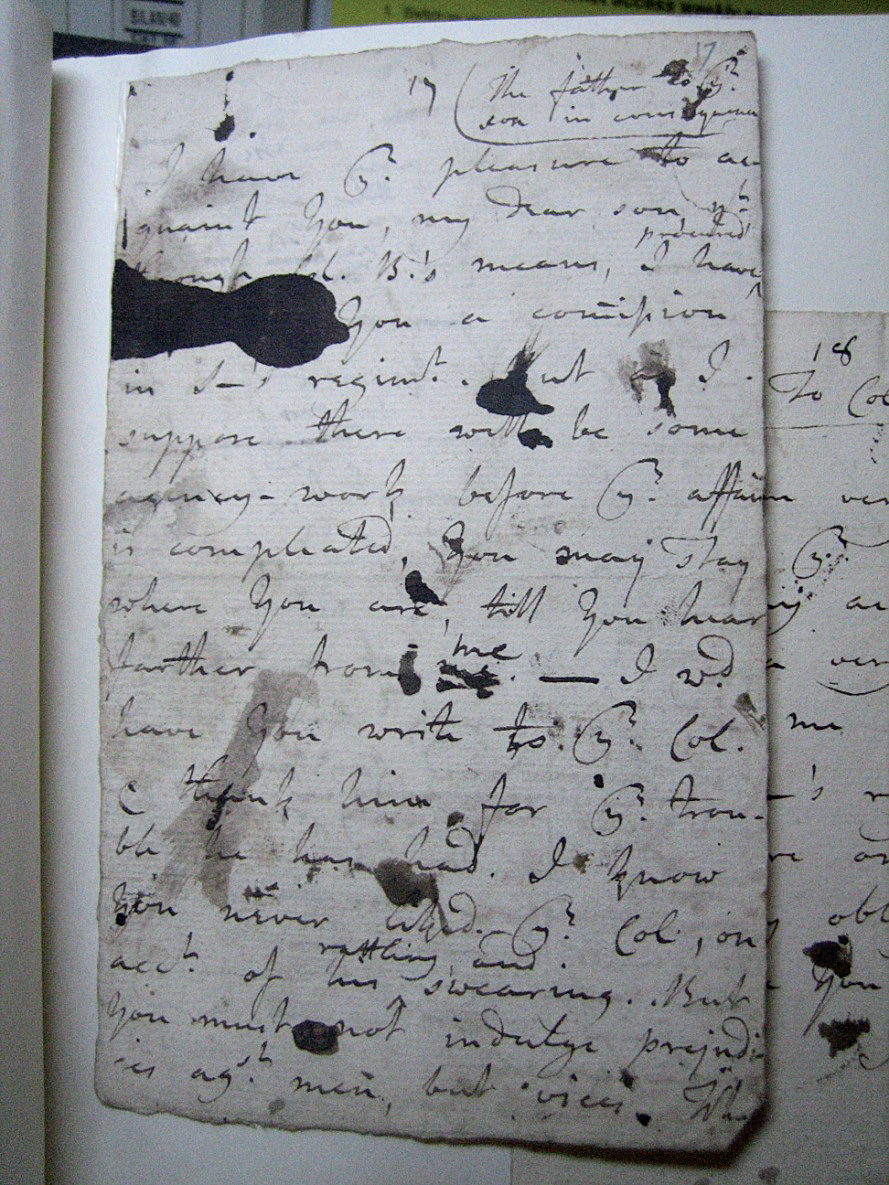 BLAN40
17
17 (The father to yͤ
son in consequence
I have yͤ pleasure to ac-
quaint you, my dear son, yᵗ
procured
through Col. B.'s means, I have
^
you a com̄ission
in S—'s regimᵗ. But as I
suppose there will be some
agency-work before yͤ affair
is compleated, you may stay
where you are, till you hear
me
farther from me. — I wᵈ
have you write to yͤ Col.
& thank him for yͤ trou-
ble he has had. I know
you never liked yͤ Col, on
rattling, and
accᵗ of his swearing. But
you must not indulge prejudi-
ces agˢᵗ men, but vices.
18
To Col
ver
yͤ
me
—'s
obl
you